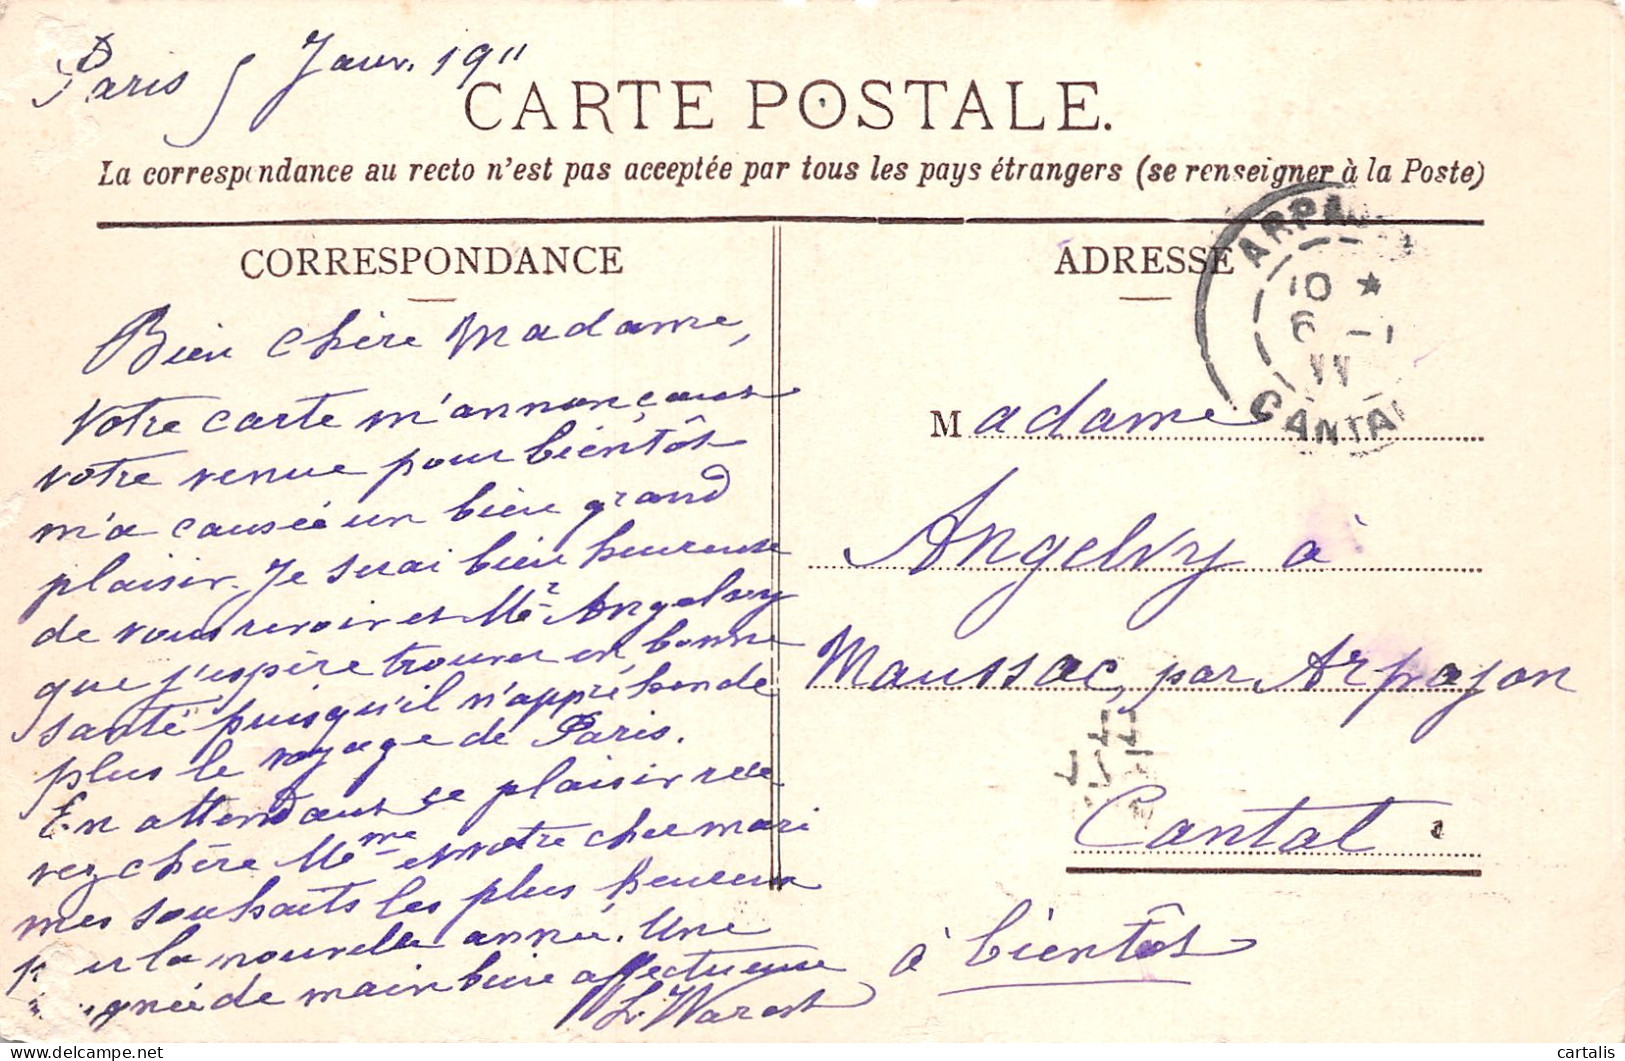 Paris 5 Janv. 1911
CARTE POSTALE.
La correspondance au recto n'est pas acceptée par tous les pays étrangers (se renseigner à la Poste)
CORRESPONDANCE
Bien chère Madame,
Votre carte m'annonçant
votre venue pour bientôt
m'a causée un bien grand
plaisir. Je serai bien heureuse
de vous revoir et Mr Angelvy
que j'espère trouver en bonne
santé puisqu'il n'appréhende
plus le voyage de Paris.
En attendant ce plaisir rece
vez chère Mme et votre cher mari
mes souhaits les plus heureux
pour la nouvelle année. Une
poignée de main bien affectueuse
L. Warest
ADRESSE
Madame
Angelvy à
Maussac, par Arpajon
Cantal
à bientôt
ARPAJ
10 *
6 - 1
11
CANTAL
cartalis